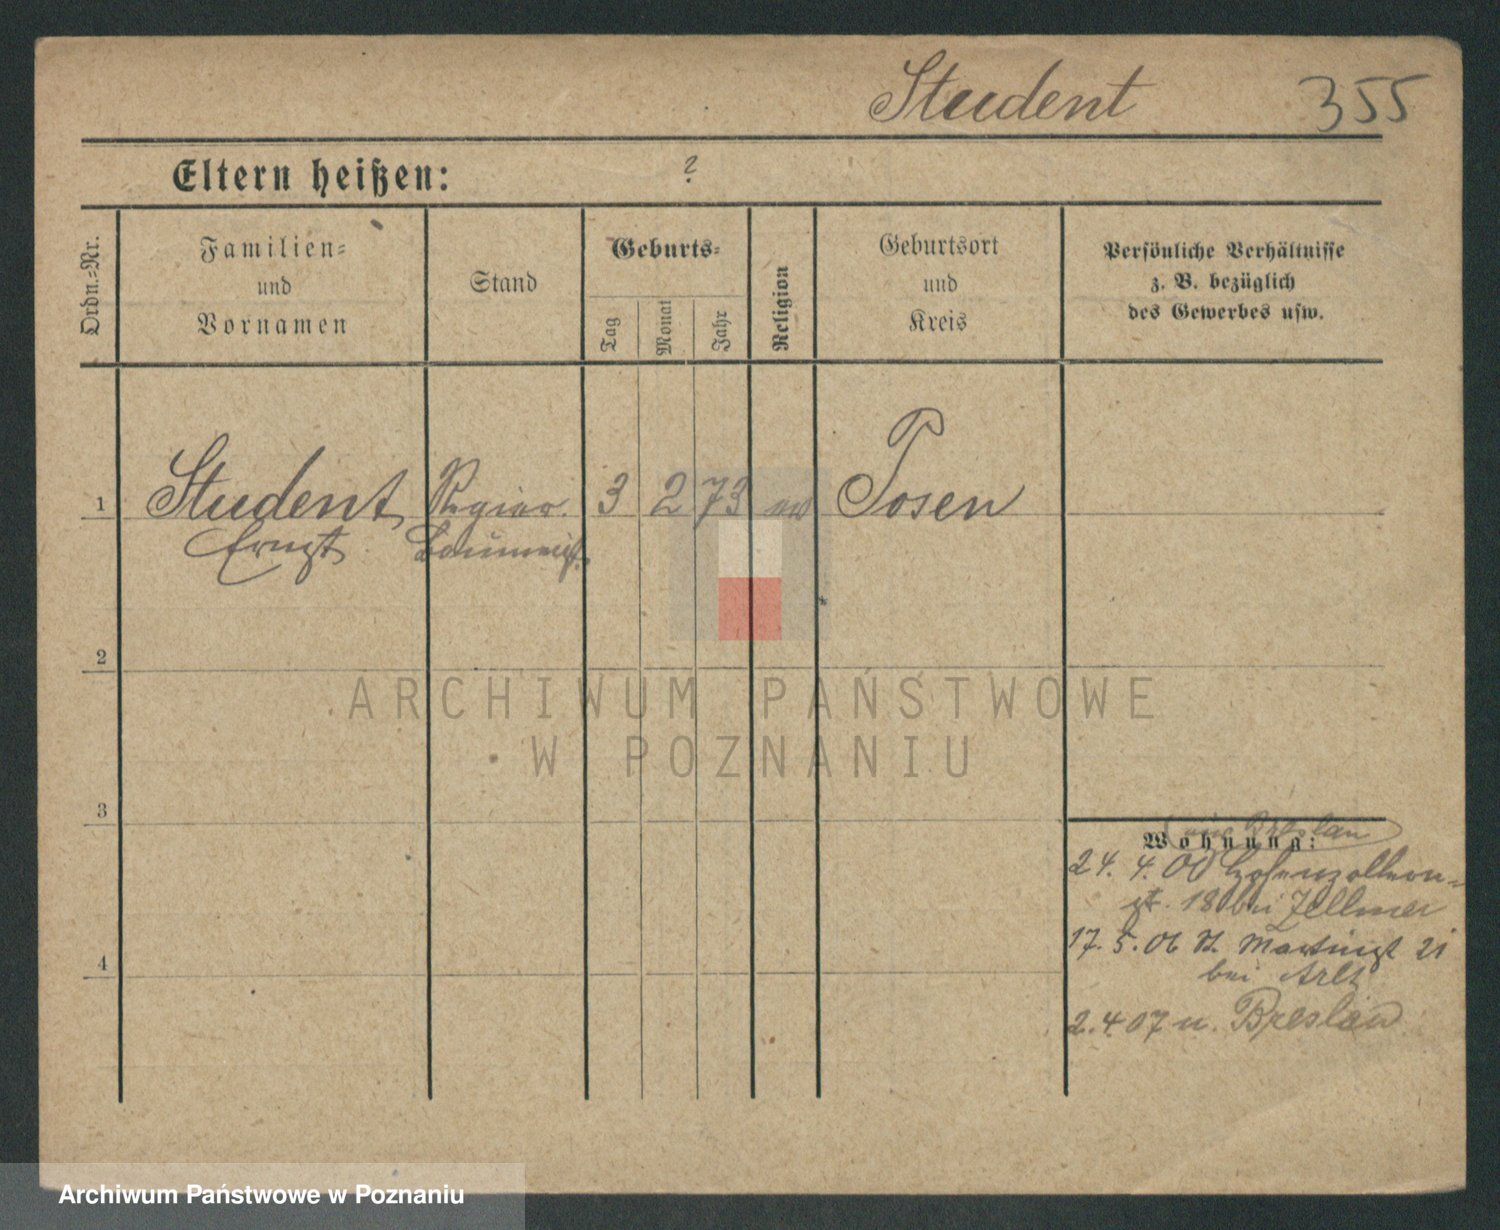 Student 355
Eltern heißen: ?
Ordn.-Nr.
Familien-
und
Vornamen
Stand
Geburts-
Tag
Monat
Jahr
Religion
Geburtsort
und
Kreis
Persönliche Verhältnisse
z. B. bezüglich
des Gewerbes usw.
1 Student, Regier. 3 2 73 ev Posen
Ernst Baumeist.
2
ARCHIWUM PAŃSTWOWE
W POZNANIU
3
Breslau
Wohnung:
24. 4. 06 Hohenzollern-
st. 18 bei Zellmer
17. 5. 06 St. Martinst 21
bei Arlt
4
2. 4 07 n. Breslau
Archiwum Państwowe w Poznaniu